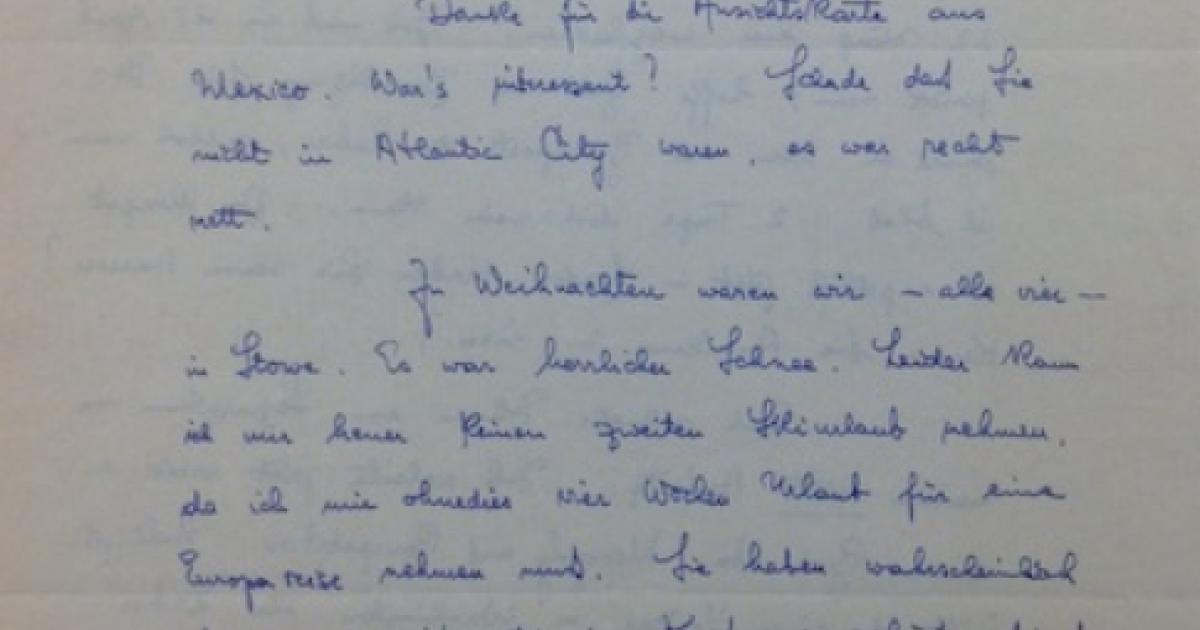 Danke für die Ansichtskarte aus
Mexico. War's interessant? Schade daß Sie
nicht in Atlantic City waren, es war recht
nett.
Zu Weihnachten waren wir – alle vier –
in Stowe. Es war herrlicher Schnee. Leider kann
ich mir heuer keinen zweiten Skiurlaub nehmen,
da ich mir ohnedies vier Wochen Urlaub für eine
Europareise nehmen muß. Sie haben wahrscheinlich